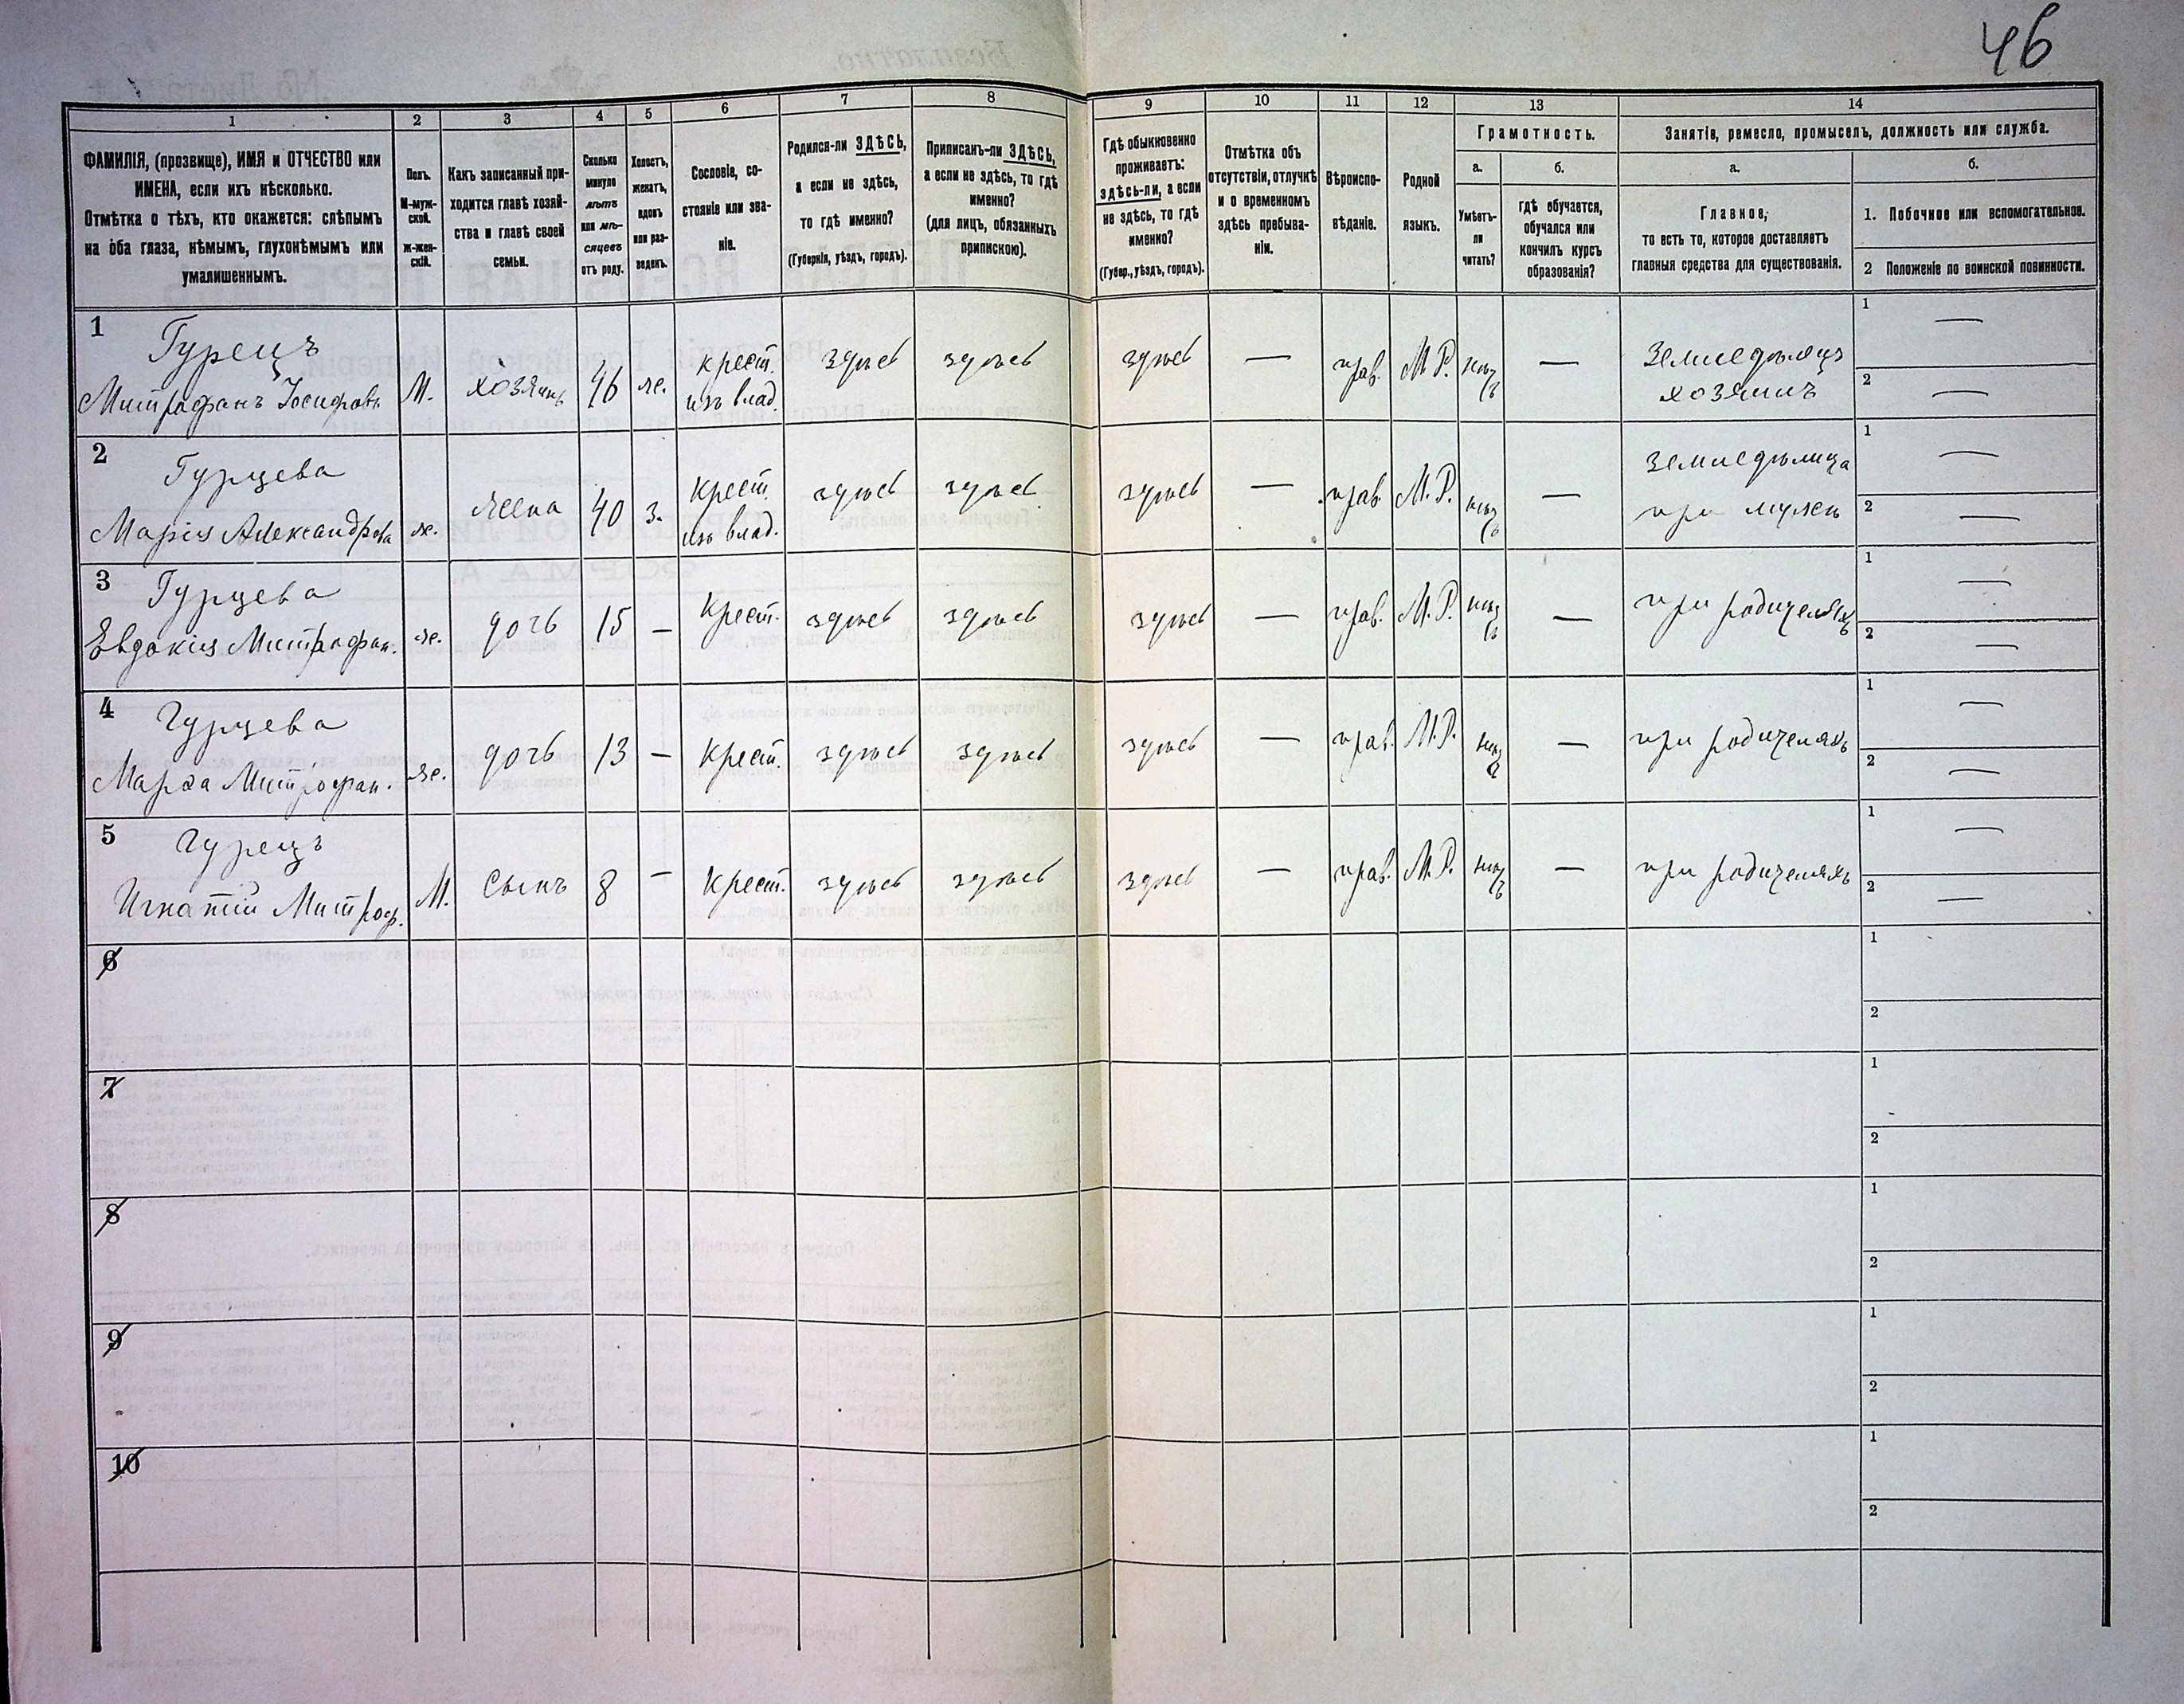 46
1
2
3
4
5
6
7
8
9
10
11
12
13
14
ФАМИЛІЯ, (прозвище), ИМЯ и ОТЧЕСТВО или
ИМЕНА, если ихъ нѣсколько.
Отмѣтка о тѣхъ, кто окажется: слѣпымъ
на оба глаза, нѣмымъ, глухонѣмымъ или
умалишеннымъ.
Полъ.
М-муж-
ской.
Ж-жен-
скій.
Какъ записанный при-
ходится главѣ хозяй-
ства и главѣ своей
семьи.
Сколько
минуло
лѣтъ
или мѣ-
сяцевъ
отъ роду.
Холостъ,
женатъ,
вдовъ
или раз-
веденъ.
Сословіе, со-
стояніе или зва-
ніе.
Родился-ли ЗДѢСЬ,
а если не здѣсь,
то гдѣ именно?
(Губернія, уѣздъ, городъ).
Приписанъ-ли ЗДѢСЬ,
а если не здѣсь, то гдѣ
именно?
(для лицъ, обязанныхъ
припискою).
Гдѣ обыкновенно
проживаетъ:
здѣсь-ли, а если
не здѣсь, то гдѣ
именно?
(Губер., уѣздъ, городъ).
Отмѣтка объ
отсутствіи, отлучкѣ
и о временномъ
здѣсь пребыва-
ніи.
Вѣроиспо-
вѣданіе.
Родной
языкъ.
Грамотность.
а.
Умѣетъ-
ли
читать?
б.
гдѣ обучается,
обучался или
кончилъ курсъ
образованія?
Занятіе, ремесло, промыселъ, должность или служба.
а.
Главное,
то есть то, которое доставляетъ
главныя средства для существованія.
б.
1. Побочное или вспомогательное.
2 Положеніе по воинской повинности.
1
Гурецъ
Митрофанъ Іосифовъ
М.
хозяинъ
46
же.
крест.
изъ влад.
здѣсь
здѣсь
здѣсь
—
прав.
М.Р.
нѣтъ
—
Земледѣлецъ
хозяинъ
1 —
2 —
2
Гурцева
Марія Александрова
ж.
жена
40
з.
Крест.
изъ влад.
здѣсь
здѣсь
здѣсь
—
прав.
М.Р.
нѣтъ
—
Земледѣлица
при мужѣ
1 —
2 —
3
Гурцева
Евдокія Митрофан.
же.
дочь
15
—
Крест.
здѣсь
здѣсь
здѣсь
—
прав.
М.Р.
нѣтъ
—
при родителяхъ
1 —
2 —
4
Гурцева
Марѳа Митрофан.
же.
дочь
13
—
Крест.
здѣсь
здѣсь
здѣсь
—
прав.
М.Р.
нѣтъ
—
при родителяхъ
1 —
2 —
5
Гурецъ
Игнатій Митроф.
М.
Сынъ
8
—
Крест.
здѣсь
здѣсь
здѣсь
—
прав.
М.Р.
нѣтъ
—
при родителяхъ
1 —
2 —
6
1
2
7
1
2
8
1
2
9
1
2
10
1
2